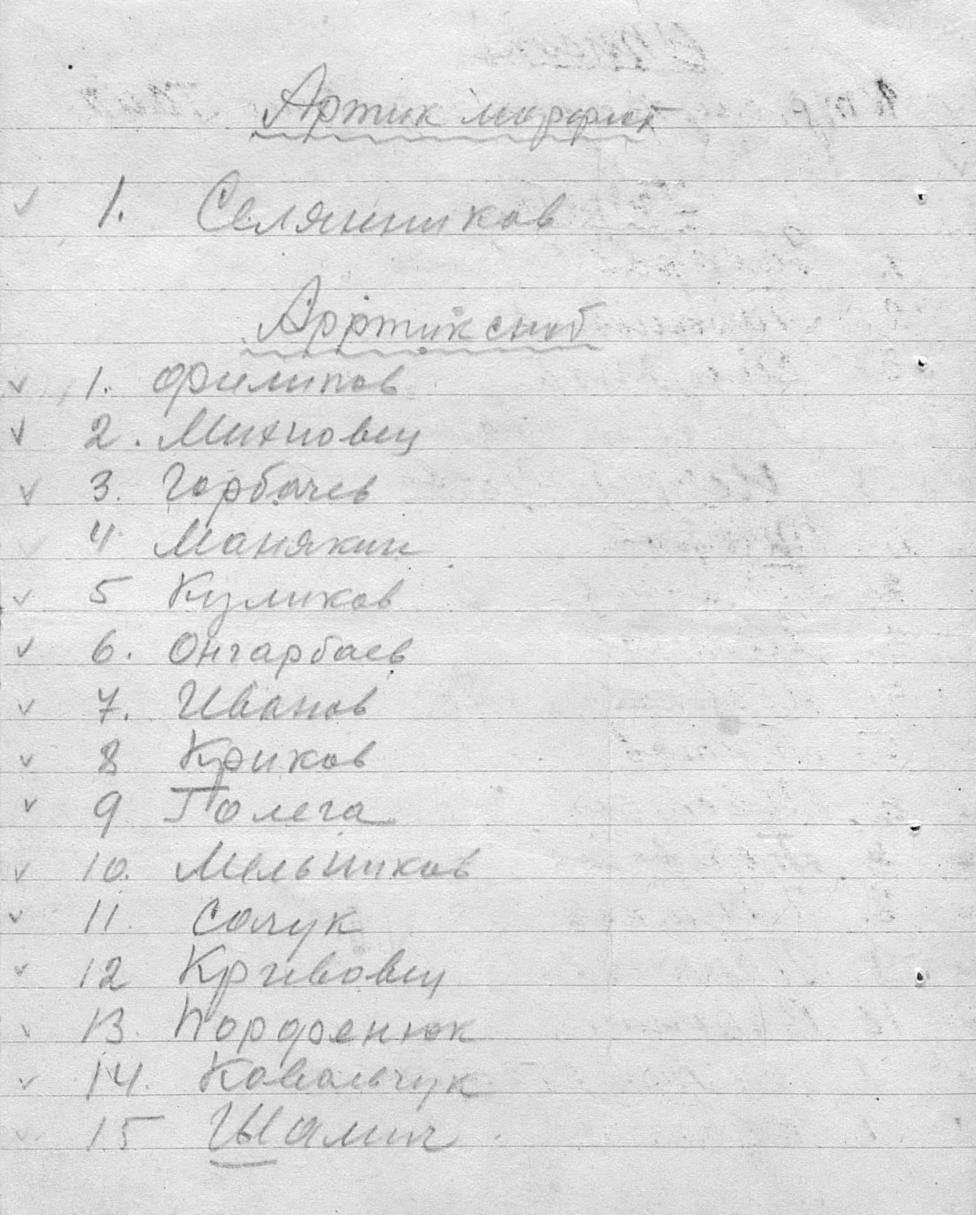 Артик
1. Селянников
Арртикснаб
1. Филипов
2. Михновец
3. Горбачев
4. Манякин
5 Куликов
6. Онгарбаев
7. Иванов
8 Криков
9 Голега
10. Мельников
11. Солук
12 Кривовец
13. Порфенюк
14. Ковальчук
15 Шалин